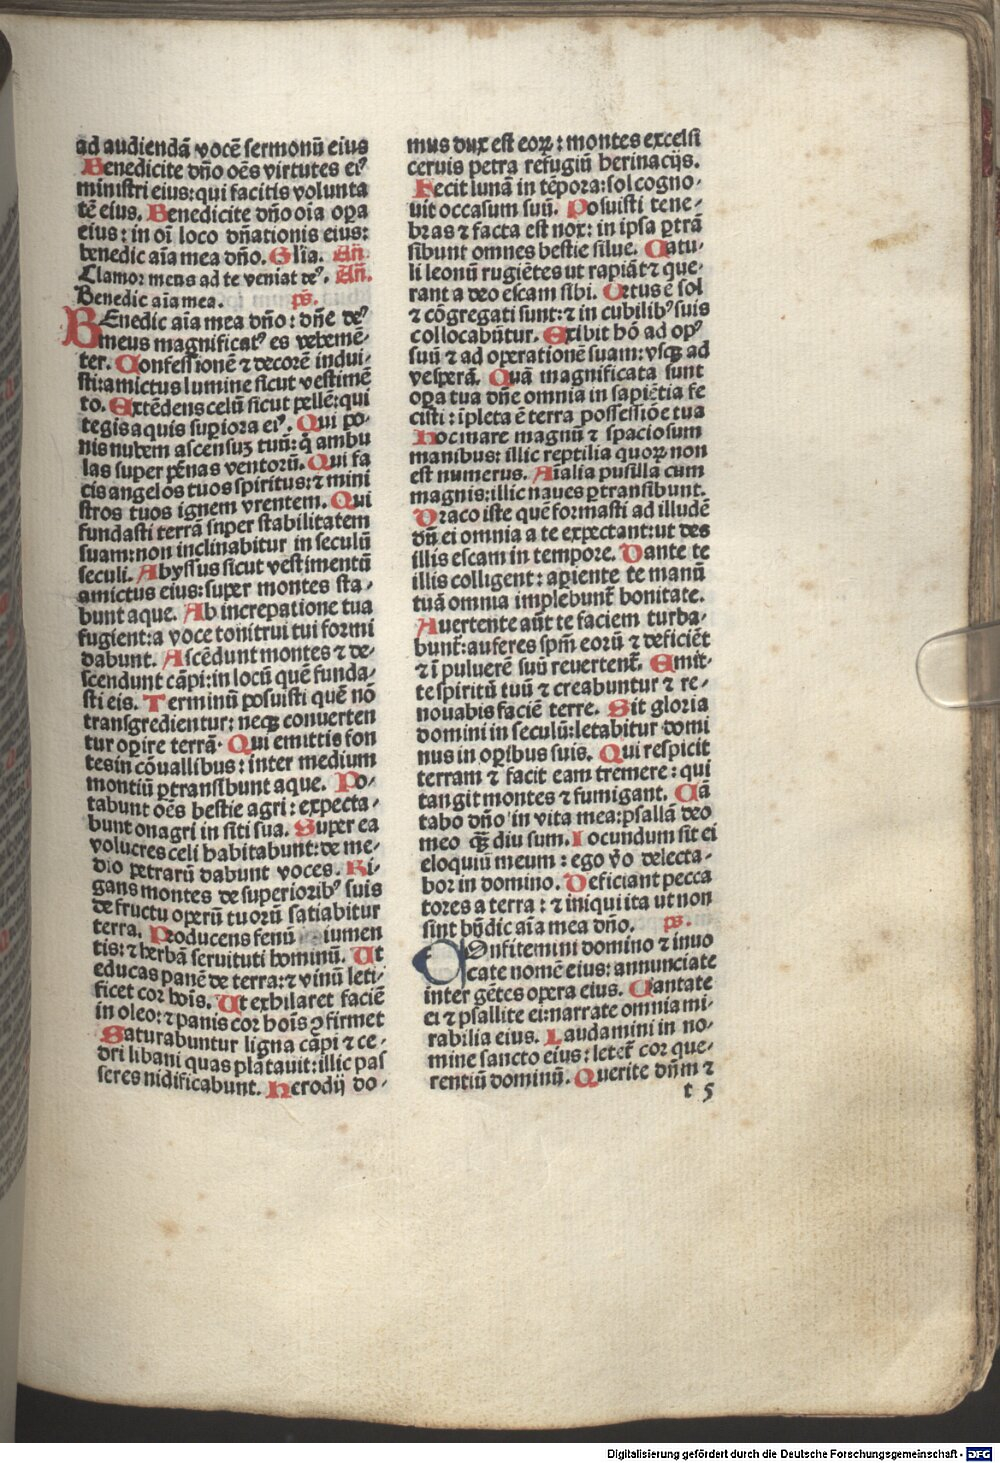 ad audiendā vocē sermonū eius
Benedicite dño oēs virtutes ei⁹
ministri eius: qui facitis volunta
tē eius. Benedicite dño oīa oꝑa
eius: in oī loco dñationis eius:
benedic aīa mea dño. Glīa. Añ.
Clamor meus ad te veniat de⁹. Añ.
Benedic aīa mea. ps.
BEnedic aīa mea dño: dñe de⁹
meus magnificat⁹ es vehemē-
ter. Confessionē ⁊ decorē indui-
sti: amictus lumine sicut vestimē
to. Extēdens celū sicut pellē: qui
tegis aquis suꝑiora ei⁹. Qui po-
nis nubem ascensuꝫ tuū: q̄ ambu
las super pēnas ventorū. Qui fa
cis angelos tuos spiritus: ⁊ mini
stros tuos ignem vrentem. Qui
fundasti terrā super stabilitatem
suam: non inclinabitur in seculū
seculi. Abyssus sicut vestimentū
amictus eius: super montes sta-
bunt aque. Ab increpatione tua
fugient: a voce tonitrui tui formi
dabunt. Ascēdunt montes ⁊ de-
scendunt cāpi: in locū quē funda-
sti eis. Terminū posuisti quē nō
transgredientur: neqꝫ conuerten
tur oꝑire terrā. Qui emittis fon
tes in cōuallibus: inter medium
montiū ꝑtransibunt aque. Po-
tabunt oēs bestie agri: expecta-
bunt onagri in siti sua. Super ea
volucres celi habitabunt: de me-
dio petrarū dabunt voces. Ri-
gans montes de superiorib⁹ suis
de fructu operū tuorū satiabitur
terra. Producens fenū iumen
tis: ⁊ herbā seruituti hominū. Ut
educas panē de terra: ⁊ vinū leti-
ficet cor hoīs. Ut exhilaret faciē
in oleo: ⁊ panis cor hoīs ꝯfirmet
Saturabuntur ligna cāpi ⁊ ce-
dri libani quas plātauit: illic pas
seres nidificabunt. Herodij do-
mus dux est eoꝝ: montes excelsi
ceruis petra refugiū herinacijs.
Fecit lunā in tēpora: sol cogno-
uit occasum suū. Posuisti tene-
bras ⁊ facta est nox: in ipsa ꝑtrā
sibunt omnes bestie silue. Catu-
li leonū rugiētes ut rapiāt ⁊ que-
rant a deo escam sibi. Ortus ē sol
⁊ cōgregati sunt: ⁊ in cubilib⁹ suis
collocabūtur. Exibit hō ad op⁹
suū ⁊ ad operationē suam: vsqꝫ ad
vesperā. Quā magnificata sunt
oꝑa tua dñe omnia in sapiētia fe
cisti: īpleta ē terra possessiōe tua
Hoc mare magnū ⁊ spaciosum
manibus: illic reptilia quoꝝ non
est numerus. Aīalia pusilla cum
magnis: illic naues ꝑtransibunt.
Draco iste quē formasti ad illudē
dū ei omnia a te expectant: ut des
illis escam in tempore. Dante te
illis colligent: aꝑiente te manū
tuā omnia implebunt̄ bonitate.
Auertente aūt te faciem turba-
bunt̄: auferes spm̄ eorū ⁊ deficiēt
⁊ ī puluerē suū reuertent̄. Emit-
te spiritū tuū ⁊ creabuntur ⁊ re-
nouabis faciē terre. Sit gloria
domini in seculū: letabitur domi
nus in oꝑibus suis. Qui respicit
terram ⁊ facit eam tremere: qui
tangit montes ⁊ fumigant. Cā
tabo dño in vita mea: psallā deo
meo qꝫ̄ diu sum. Iocundum sit ei
eloquiū meum: ego v̊o delecta-
bor in domino. Deficiant pecca
tores a terra: ⁊ iniqui ita ut non
sint bn̄dic aīa mea dño. ps.
COnfitemini domino ⁊ inuo
cate nomē eius: annunciate
inter gētes opera eius. Cantate
ei ⁊ psallite ei: narrate omnia mi-
rabilia eius. Laudamini in no-
mine sancto eius: letet̄ cor que-
rentiū dominū. Querite dn̄m ⁊
t 5
Digitalisierung gefördert durch die Deutsche Forschungsgemeinschaft - DFG